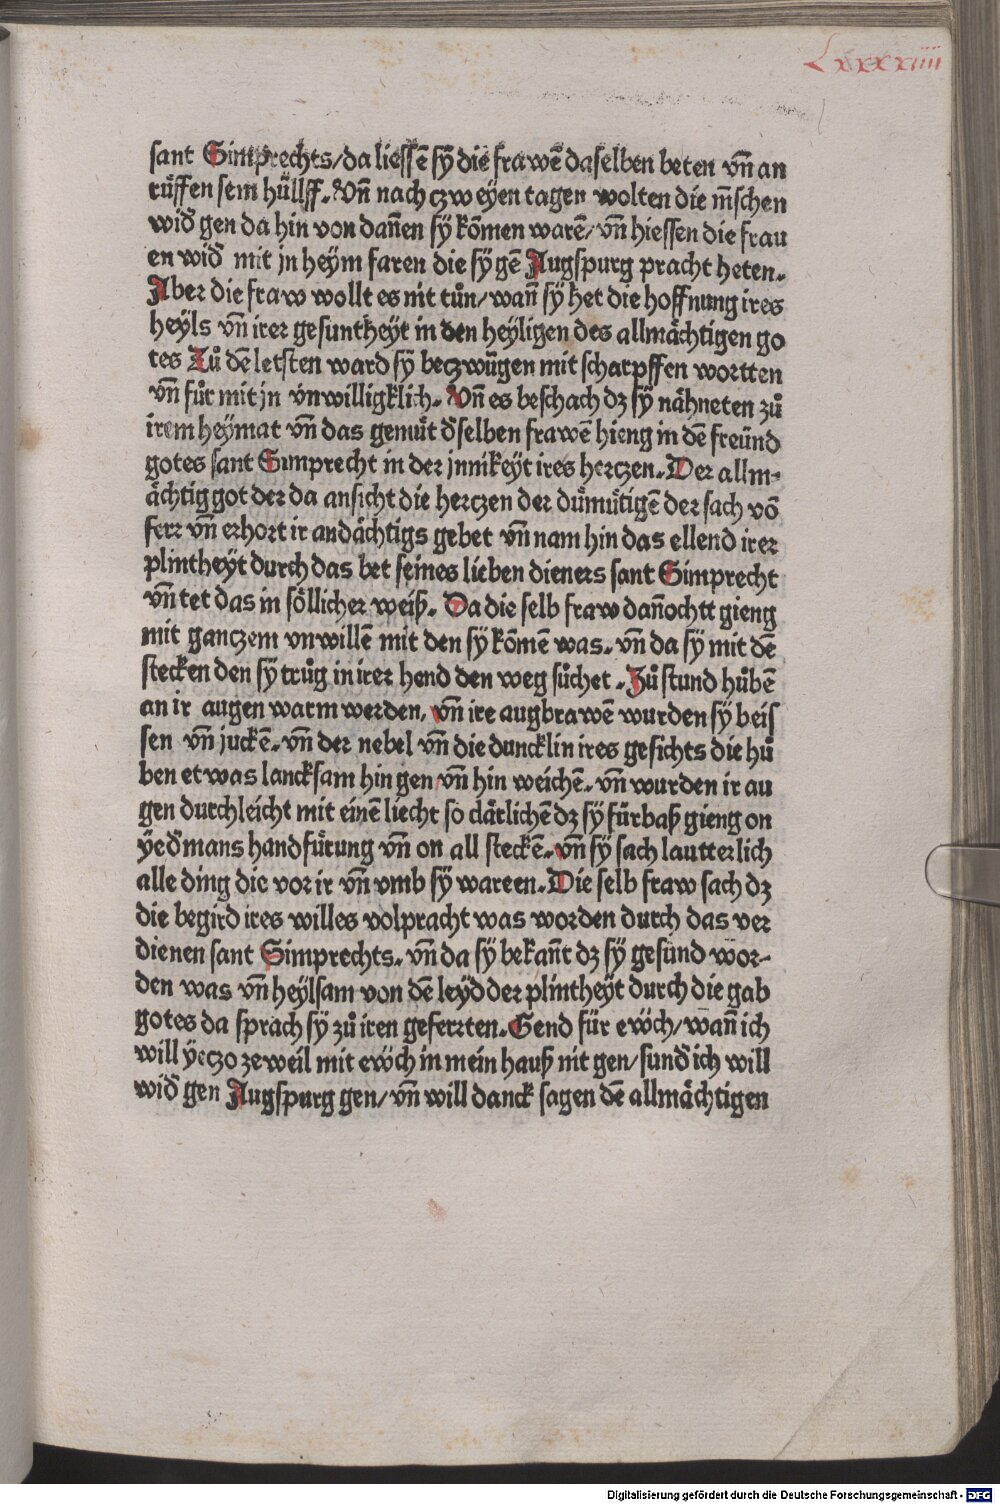 Lxxxxiiii
sant Simprechts/ da liessẽ sÿ die frawẽ daselben beten vñ an
růffen sein hüllff. Vñ nach czweÿen tagen wolten die m̃schen
wid̃ gen da hin von dañen sÿ kõmen warẽ/ vñ hiessen die frau
en wid̃ mit jn heÿm faren die sÿ gẽ Augspurg pracht heten.
Aber die fraw wollt es nit tůn/ wañ sÿ het die hoffnung ires
heÿls vñ irer gesuntheÿt in den heÿligen des allmächtigen go
tes Zů dẽ letsten ward sÿ beczwũgen mit scharpffen wortten
vñ fůr mit jn vnwilligklich. Vñ es beschach dz sÿ nähneten zů
irem heÿmat vñ das gemůt d̃selben frawẽ hieng in dẽ freünd
gotes sant Simprecht in der jnnikeÿt ires herczen. Der allm-
ächtig got der da ansicht die herczen der důmůtigẽ der sach võ
ferr vñ erhort ir andächtigs gebet vñ nam hin das ellend irer
plintheÿt durch das bet seines lieben dieners sant Simprecht
vñ tet das in söllicher weiß. Da die selb fraw dañochtt gieng
mit ganczem vnwillẽ mit den sÿ kõmẽ was. vñ da sÿ mit dẽ
stecken den sÿ trůg in irer hend den weg sůchet. Zů stund hůbẽ
an ir augen warm werden, vñ ire augbrawẽ wurden sÿ beis
sen vñ juckẽ. vñ der nebel vñ die duncklin ires gesichts die hů
ben etwas lancksam hin gen vñ hin weichẽ. vñ wurden ir au
gen durchleicht mit einẽ liecht so clärlichẽ dz sÿ fürbaß gieng on
ÿed̃mans handfůrung vñ on all steckẽ. vñ sÿ sach lautterlich
alle ding die vor ir vñ vmb sÿ wareen. Die selb fraw sach dz
die begird ires willes volpracht was worden durch das ver
dienen sant Simprechts. vñ da sÿ bekañt dz sÿ gesund wor-
den was vñ heÿlsam von dẽ leÿd der plintheÿt durch die gab
gotes da sprach sÿ zů iren geferzten. Gend für ewch/ wañ ich
will ÿeczo zeweil mit ewch in mein hauß nit gen/ sund̃ ich will
wid̃ gen Augspurg gen/ vñ will danck sagen dẽ allmächtigen
Digitalisierung gefördert durch die Deutsche Forschungsgemeinschaft - DFG